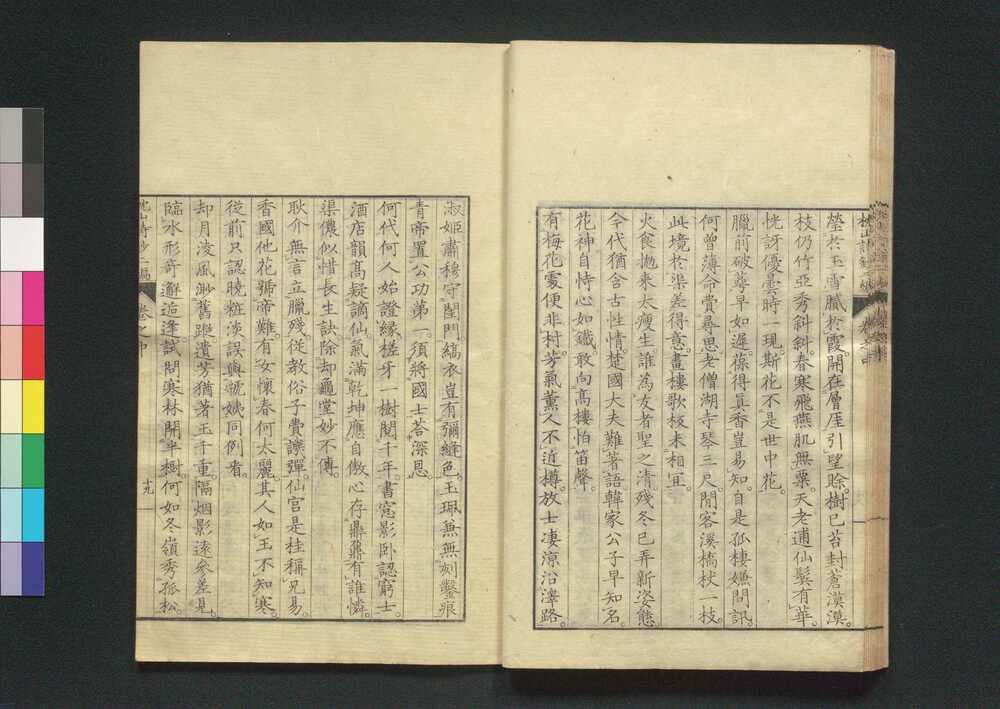 瑩於玉雪膩於霞開在層厓引望賒樹已苔封蒼漠漠
枝仍竹亞秀斜斜春寒飛燕肌無粟天老逋仙鬂有華
恍訝優曇時一現斯花不是世中花
臘前破蕚早如遲葆得真香豈易知自是孤棲嫌問訊
何曾薄命費尋思老僧湖寺琴三尺閒客溪橋杖一枝
此境於渠差得意畫樓歌板未相宜
火食拋来太瘦生誰為友者聖之清殘冬已弄新姿態
今代猶含古性情楚國大夫難著語韓家公子早知名
花神自恃心如鐵敢向高樓怕笛聲
有梅花處便非村芳氣薫人不近樽放士凄凉沿澤路
淑姬肅穆守閨門縞衣豈有彌縫色玉珮無無刻鑿痕
青帝置公功第一須將國士荅深恩
何代何人始證緣槎牙一樹閱千年書窓影卧認窮士
酒店韻髙疑謫仙氣滿乾坤應自傲心存鼎鼐有誰憐
渠儂似惜長生訣除却龜堂妙不傳
耿介無言立臘殘從教俗子費譏彈仙宮是桂稱兄易
香國他花號帝難有女懷春何太麗其人如玉不知寒
從前只認曉粧淡誤與虢姨同例看
却月淩風渺舊蹤遺芳猶著玉千重隔烟影逺參差見
臨水形奇邂逅逢試問寒林開半樹何如冬嶺秀孤松
枕山詩鈔二編
卷之中
十九